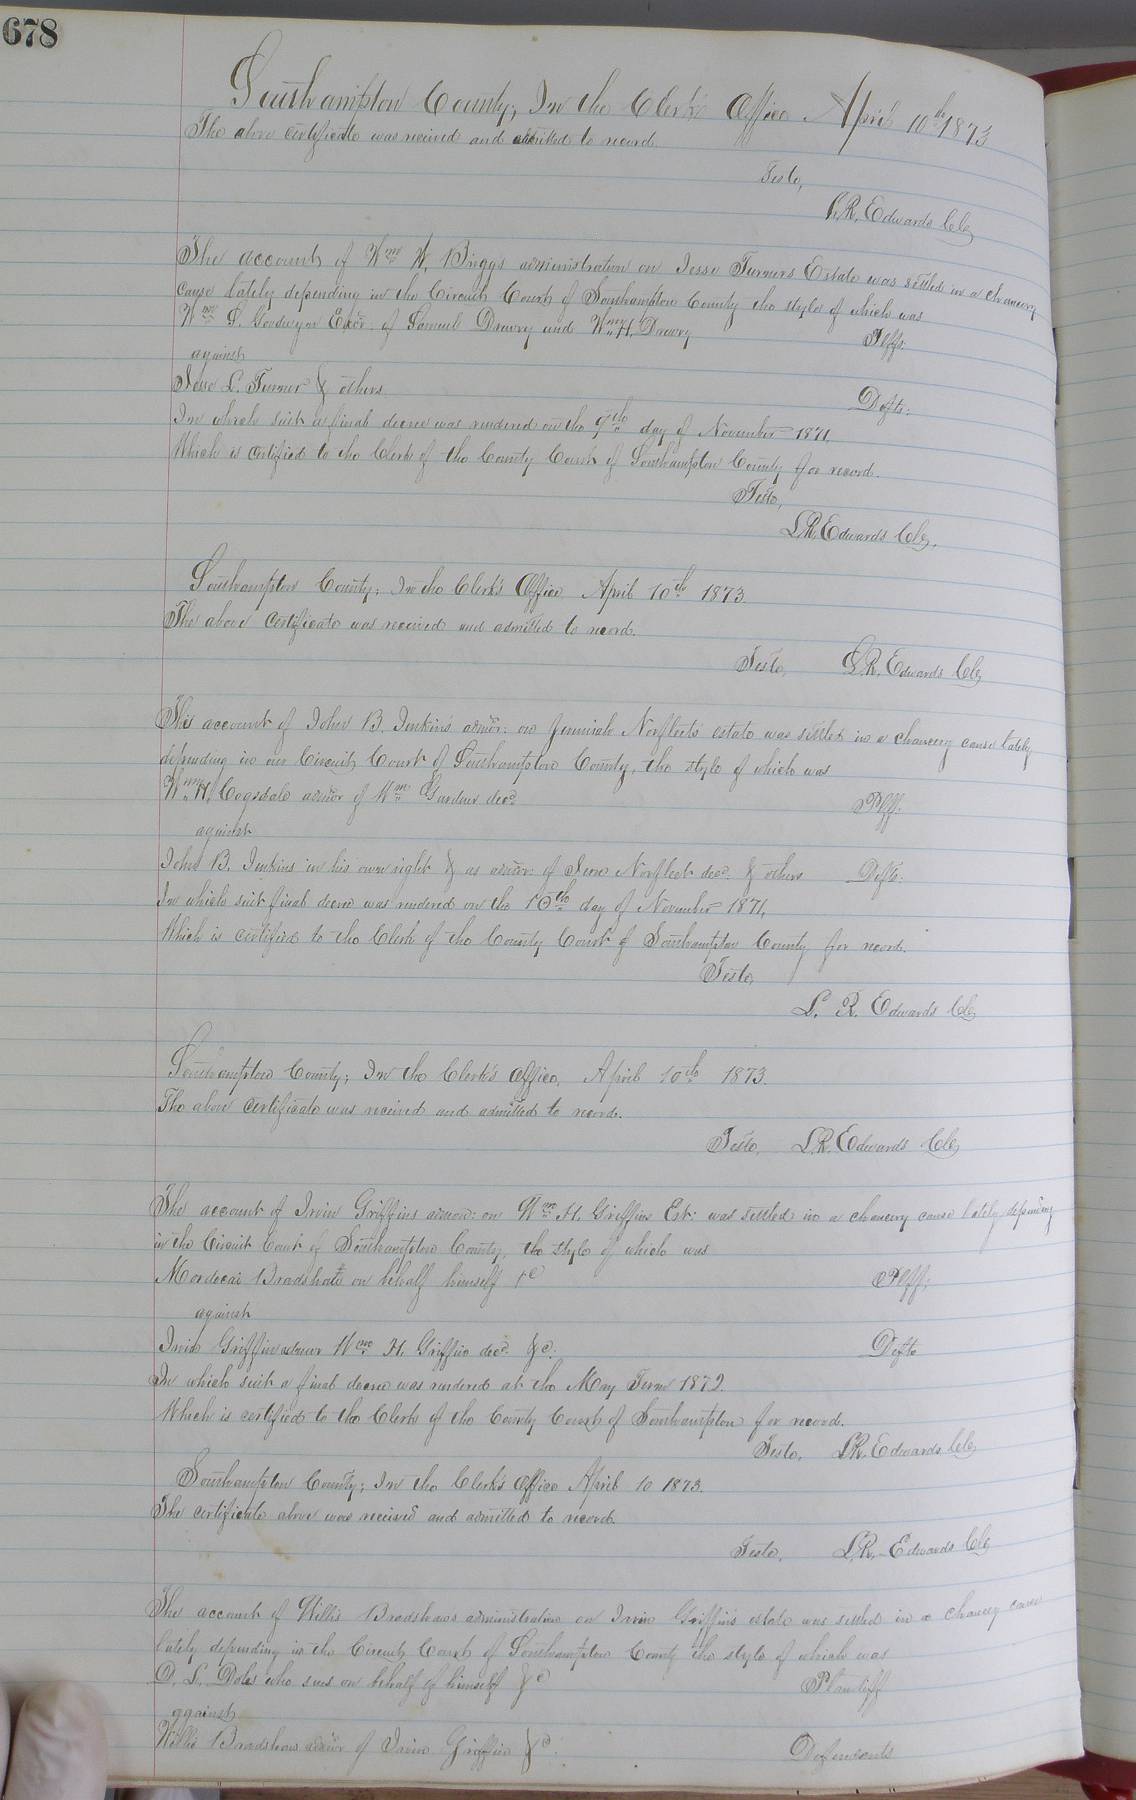 678
Southampton County; In the Clerk's Office April 10th 1873
The above certificate was received and admitted to record.
Teste,
L.R. Edwards Clk
The account of Wm W. Briggs administration on Jesse Turners Estate was settled in a chancery
cause lately depending in the Circuit Court of Southampton County the style of which was
Wm S. Goodwyn Exor. of Samuel Drewry and Wm H. Drewry Plffs.
against
Jesse L. Turner & others Defts.
In which suit a final decree was rendered on the 9th day of November 1871,
Which is certified to the Clerk of the County Court of Southampton County for record.
Teste,
L.R. Edwards Clk,
Southampton County; In the Clerk's Office April 10th 1873.
The above certificate was received and admitted to record.
Teste, L.R. Edwards Clk
The account of John B. Jenkins admor: on Jeremiah Norfleets estate was settled in a chancery cause lately
depending in our Circuit Court of Southampton County, the style of which was
Wm H. Cogsdale admor of Wm Gardner decd. Plff.
against
John B. Jenkins in his own right & as admor: of Jere Norfleet decd. & others Defts.
In which suit final decree was rendered on the 10th day of November 1871,
Which is certified to the Clerk of the County Court of Southampton County for record.
Teste,
L. R. Edwards Clk
Southampton County; In the Clerk's Office, April 10th 1873.
The above certificate was received and admitted to record.
Teste, L.R. Edwards Clk
The account of Irvin Griffins admor: on Wm H. Griffin Est: was settled in a chancery cause lately depending
in the Circuit Court of Southampton County, the style of which was
Mordecai Bradshaw on behalf himself &c Plff;
against
Irvin Griffin admor Wm H. Griffin decd. &c. Defts
In which suit a final decree was rendered at the May Term 1872.
Which is certified to the Clerk of the County Court of Southampton for record.
Teste, L.R. Edwards Clk
Southampton County; In the Clerk's Office April 10 1873.
The certificate above was received and admitted to record.
Teste, L.R. Edwards Clk
The account of Willis Bradshaws administration on Irvin Griffin's estate was settled in a chancery cause
lately depending in the Circuit Court of Southampton County the style of which was
D. L. Doles who sues on behalf of himself &c Plaintiff
against
Willis Bradshaw admor of Irvin Griffin &c. Defendants